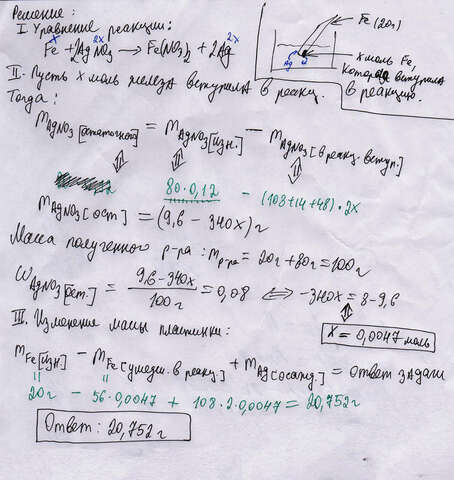 Решение:
I. Уравнение реакции:
x 2x 2x
Fe + 2AgNO₃ → Fe(NO₃)₂ + 2Ag
Fe (20г)
Ag
x моль Fe,
которая вступила
в реакцию.
II. Пусть x моль железа вступила в реакц.
Тогда:
m AgNO₃ [остаточного] = m AgNO₃ [изн.] − m AgNO₃ [в реакц. вступ.]
80·0,12 − (108+14+48)·2x
m AgNO₃ [ост] = (9,6 − 340x) г
Масса полученного р-ра: m р-ра = 20г + 80г = 100г
ω AgNO₃ [ост.] = 9,6 − 340x / 100г = 0,08 ⇔ −340x = 8 − 9,6
x = 0,0047 моль
III. Изменение массы пластинки:
m Fe [изн.] − m Fe [в реакц.] + m Ag [осажд.] = ответ задачи
20г − 56·0,0047 + 108·2·0,0047 = 20,752г
Ответ: 20,752г